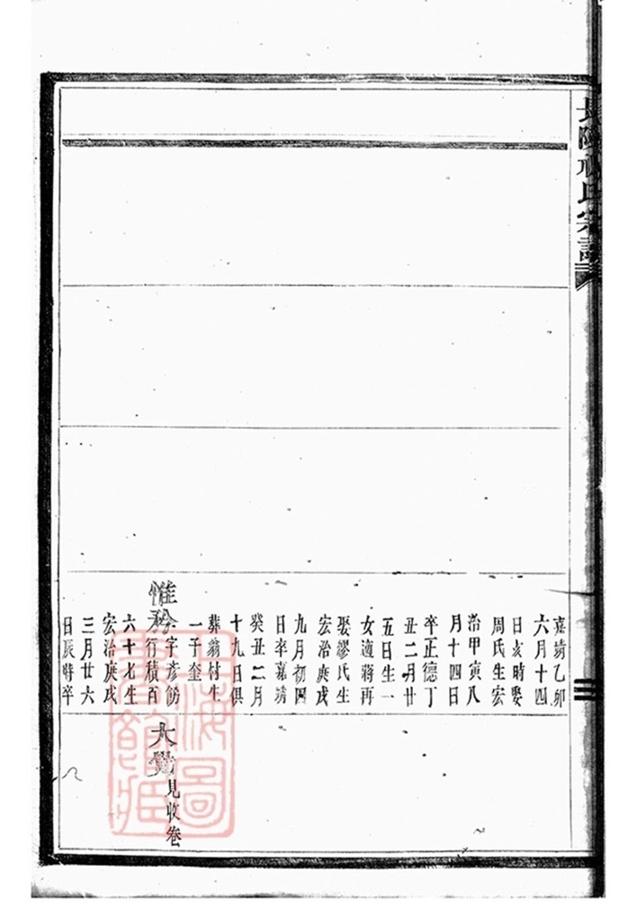 氏宗譜
嘉靖乙卯
六月十四
日亥時娶
周氏生宏
治甲寅八
月十四日
卒正德丁
丑二月廿
五日生一
女適蔣再
娶繆氏生
宏治庚戌
九月初四
日卒嘉靖
癸丑二月
十九日俱
葬翁村生
一子奎
惟 字彥
行積百
六十七生
宏治庚戌
三月廿六
日辰時卒
大 見收卷
上海圖